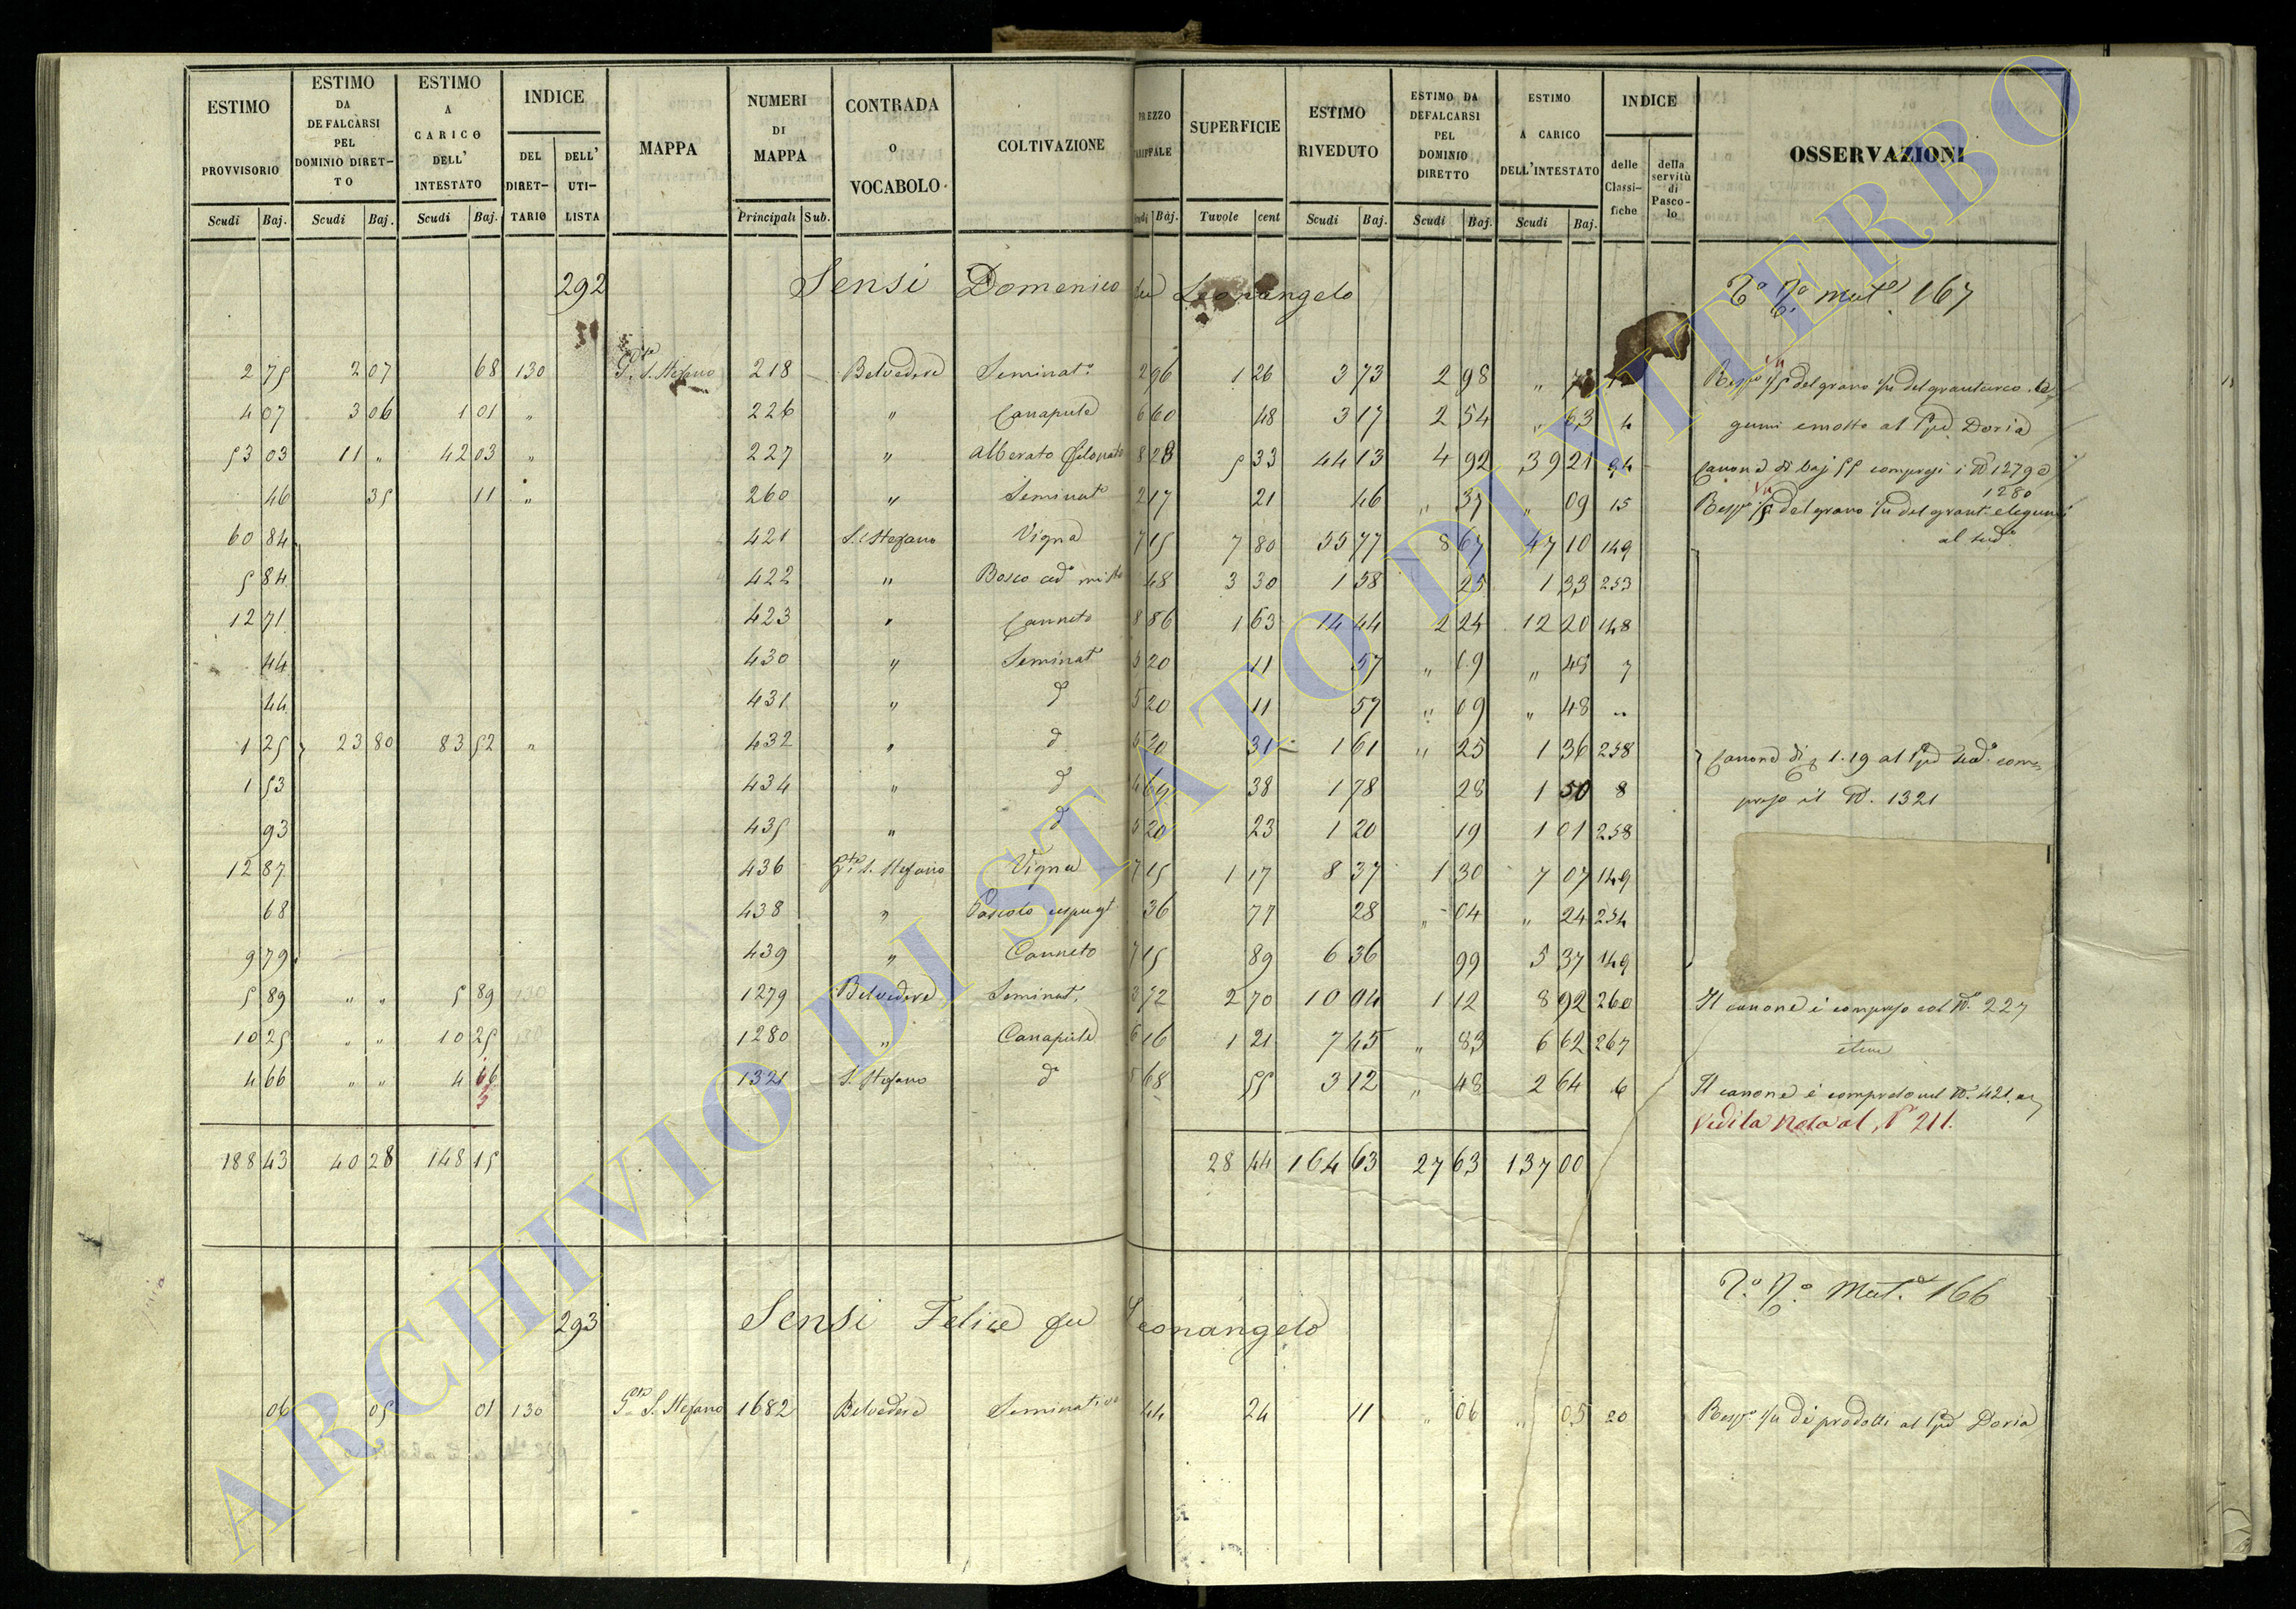 ESTIMO PROVVISORIO Scudi Baj.
ESTIMO DA DEFALCARSI PEL DOMINIO DIRET- TO Scudi Baj.
ESTIMO A CARICO DELL' INTESTATO Scudi Baj.
INDICE DEL DIRET- TARIO DELL' UTI- LISTA
MAPPA
NUMERI DI MAPPA Principali Sub.
CONTRADA O VOCABOLO
COLTIVAZIONE
PREZZO Baj.
SUPERFICIE Tavole cent
ESTIMO RIVEDUTO Scudi Baj.
ESTIMO DA DEFALCARSI PEL DOMINIO DIRETTO Scudi Baj.
ESTIMO A CARICO DELL'INTESTATO Scudi Baj.
INDICE delle Classi- fiche della servitù di Pasco- lo
OSSERVAZIONI
292 Sensi Domenico fu Leonangelo 167
2 75 2 07 68 130 S. Stefano 218 Belvedere Seminat.o 2 96 1 26 3 73 2 98 "
4 07 3 06 1 01 " 226 " Canapule 6 60 48 3 17 2 54 " 63 4 gumi al Doria
53 03 11 " 42 03 " 227 " Alberato 8 28 5 33 44 13 4 92 39 21 94 Canone di baj 55 compresi i N 1279 e
46 35 11 " 260 " Seminat.o 2 17 21 46 " 37 " 09 15 1280
60 84 421 S. Stefano Vigna 7 15 7 80 55 77 8 67 47 10 149 al sud.o
5 84 422 " Bosco ced.o misto 48 3 30 1 58 25 1 33 253
12 71 423 " Canneto 8 86 1 63 14 44 2 24 12 20 148
44 430 " Seminat.o 5 20 11 57 " 09 " 48 7
44 431 " d 5 20 11 57 " 09 " 48 "
1 25 23 80 83 52 " 432 " d 5 20 31 1 61 " 25 1 36 258 Canone di 1.19 al sud.o com=
1 53 434 " d 4 69 38 1 78 28 1 50 8 preso il N. 1321
93 435 " d 5 20 23 1 20 19 1 01 258
12 87 436 S. Stefano Vigna 7 15 1 17 8 37 1 30 7 07 149
68 438 " Pascolo 36 77 28 " 04 " 24 254
9 79 439 " Canneto 7 15 89 6 36 99 5 37 149
5 89 " " 5 89 130 1279 Belvedere Seminat. 3 72 2 70 10 04 1 12 8 92 260 Il canone è compreso col N. 227
10 25 " " 10 25 130 1280 " Canapule 6 16 1 21 7 45 " 83 6 62 267
4 66 " " 4 66 1321 S. Stefano d.o 5 68 55 3 12 " 48 2 64 6 Il canone è compreso nel N. 421
Vedi la Nota al N 211.
188 43 40 28 148 15 28 44 164 63 27 63 137 00
293 Sensi Felice fu Leonangelo Mat.e 166
06 05 01 130 S. Stefano 1682 Belvedere Seminativo 44 24 11 " 06 " 05 20 di prodotti al Doria
ARCHIVIO DI STATO DI VITERBO